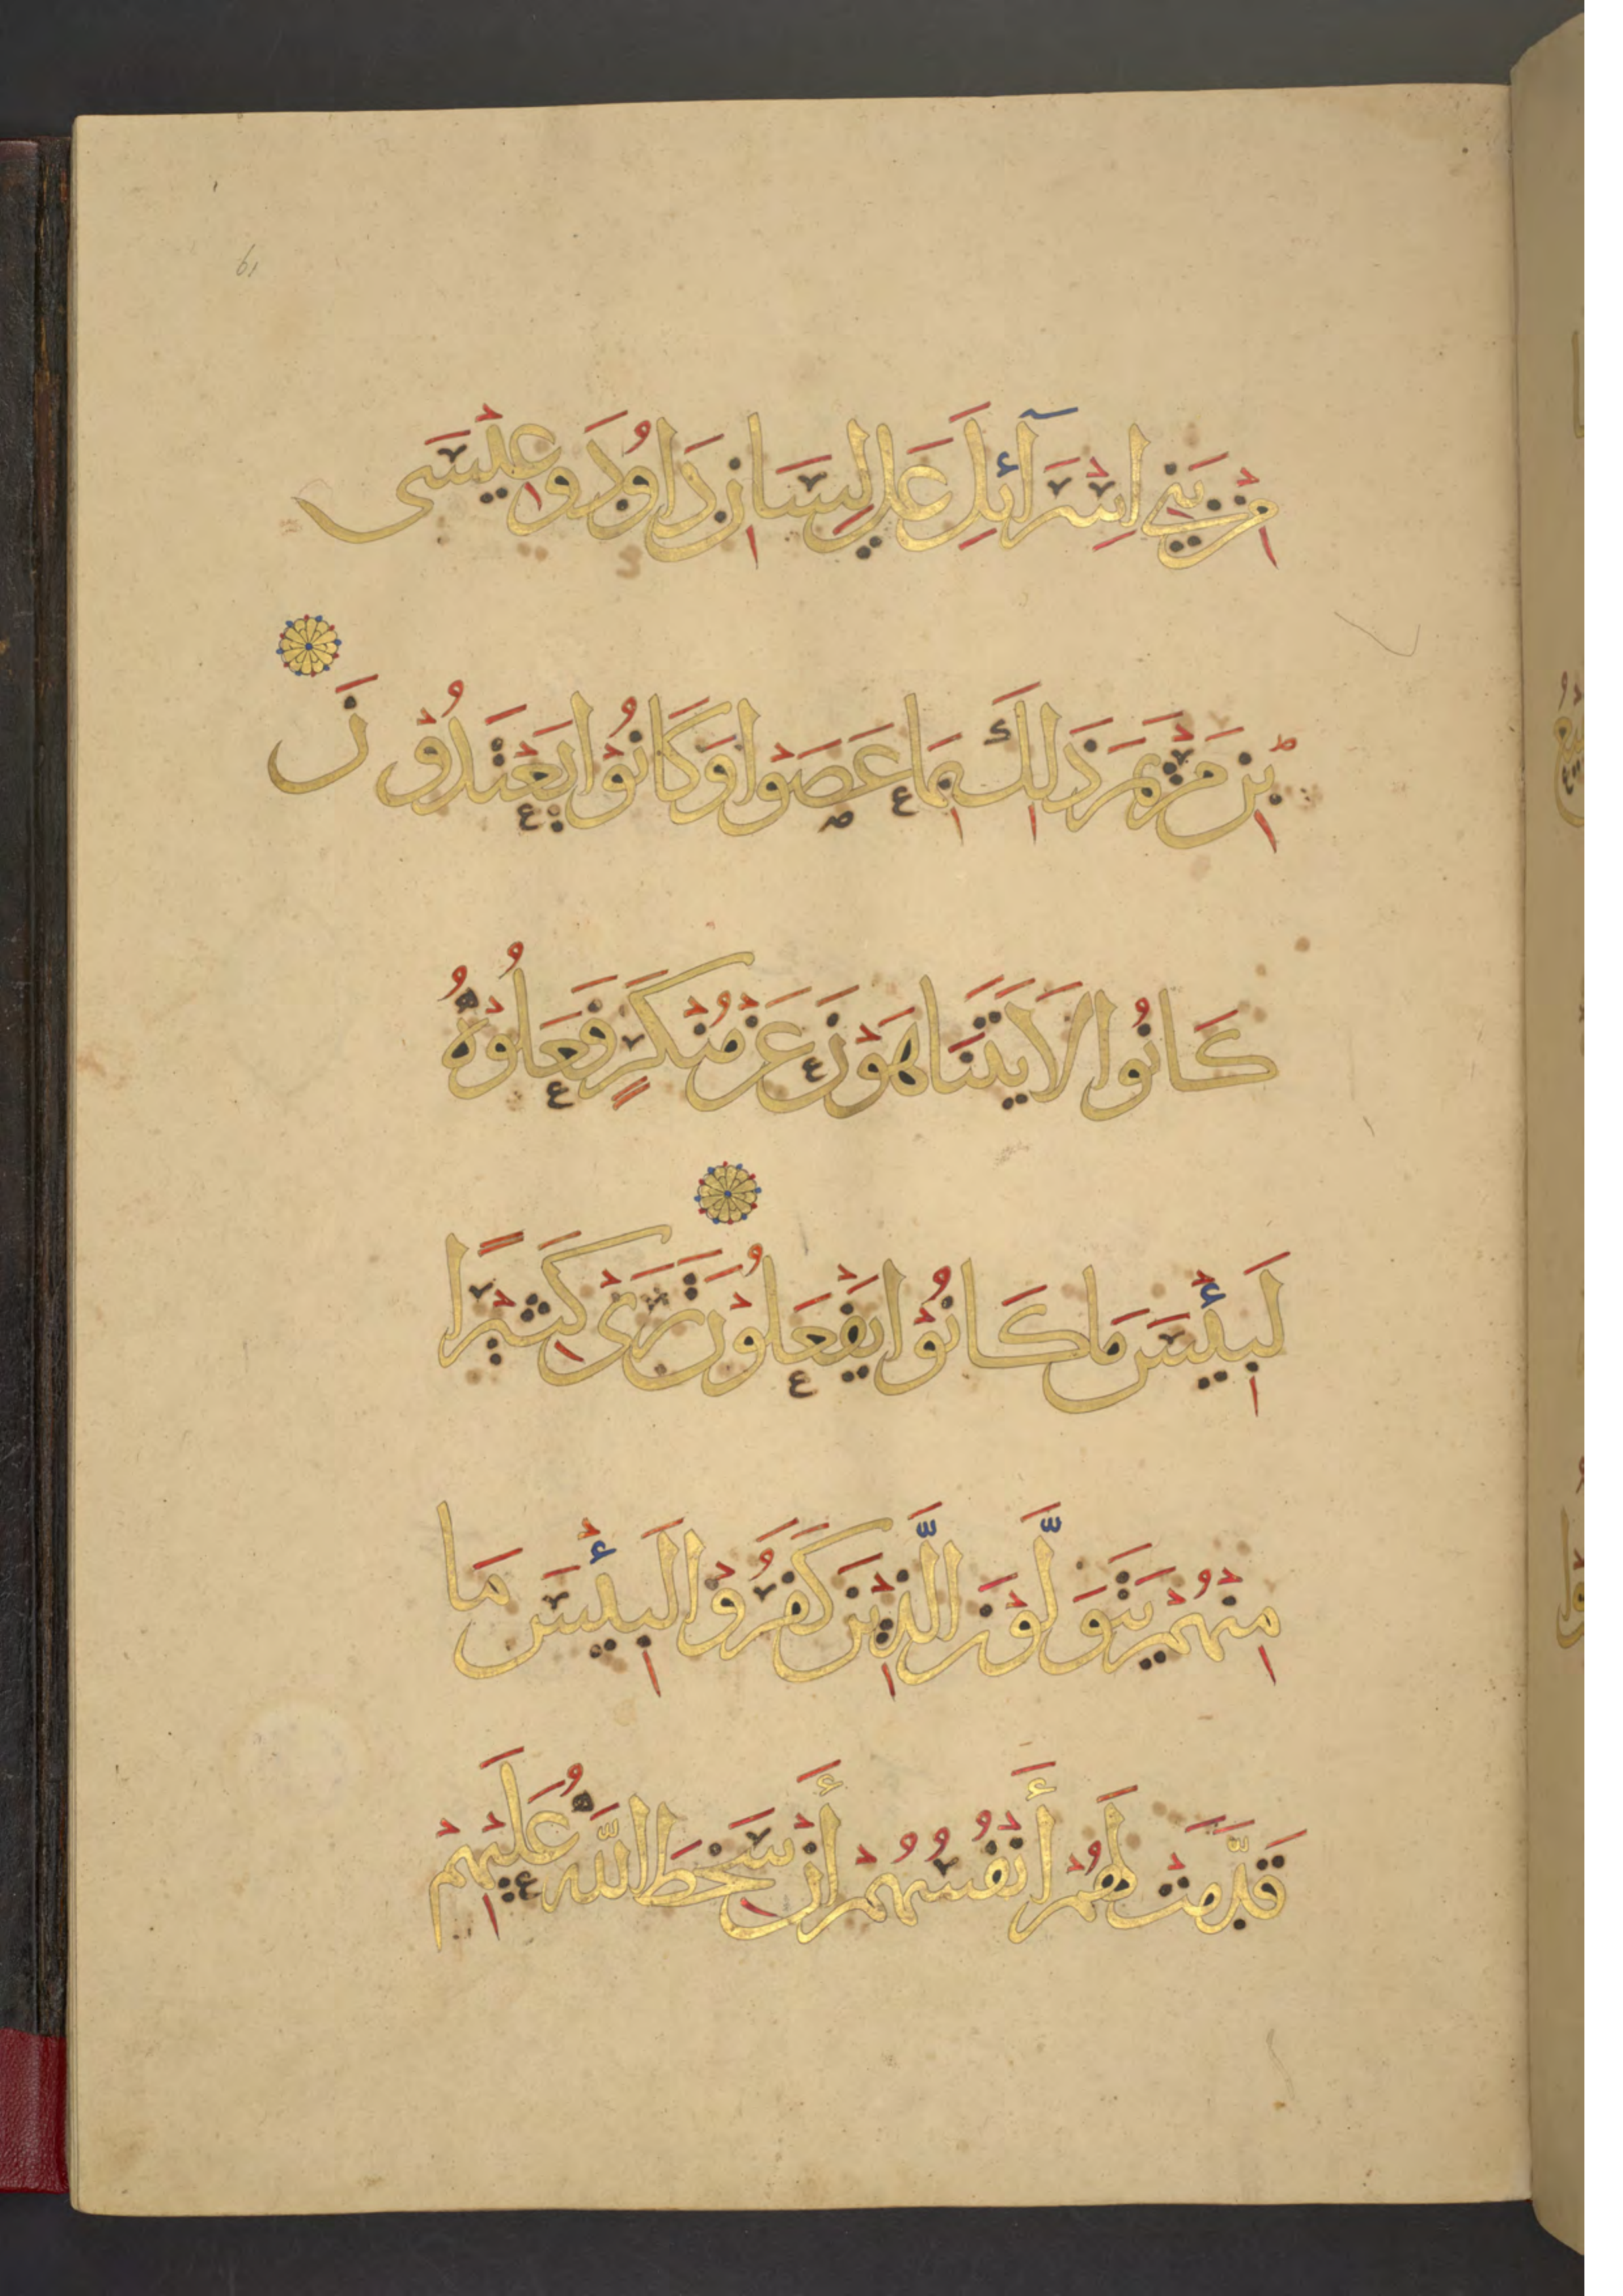 61
مِنْ بَنِيْ اِسْرَآئِلَ عَلَى لِسَانِ دَاوُدَ وَعِيْسَى
بْنِ مَرْيَمَ ذَلِكَ بِمَا عَصَوْا وَكَانُوْا يَعْتَدُوْنَ
كَانُوا لَا يَتَنَاهَوْنَ عَنْ مُنْكَرٍ فَعَلُوْهُ
لَبِئْسَ مَا كَانُوْا يَفْعَلُوْنَ تَرَى كَثِيْرًا
مِنْهُمْ يَتَوَلَّوْنَ الَّذِيْنَ كَفَرُوْا لَبِئْسَ مَا
قَدَّمَتْ لَهُمْ أَنْفُسُهُمْ أَنْ سَخِطَ اللَّهُ عَلَيْهِمْ